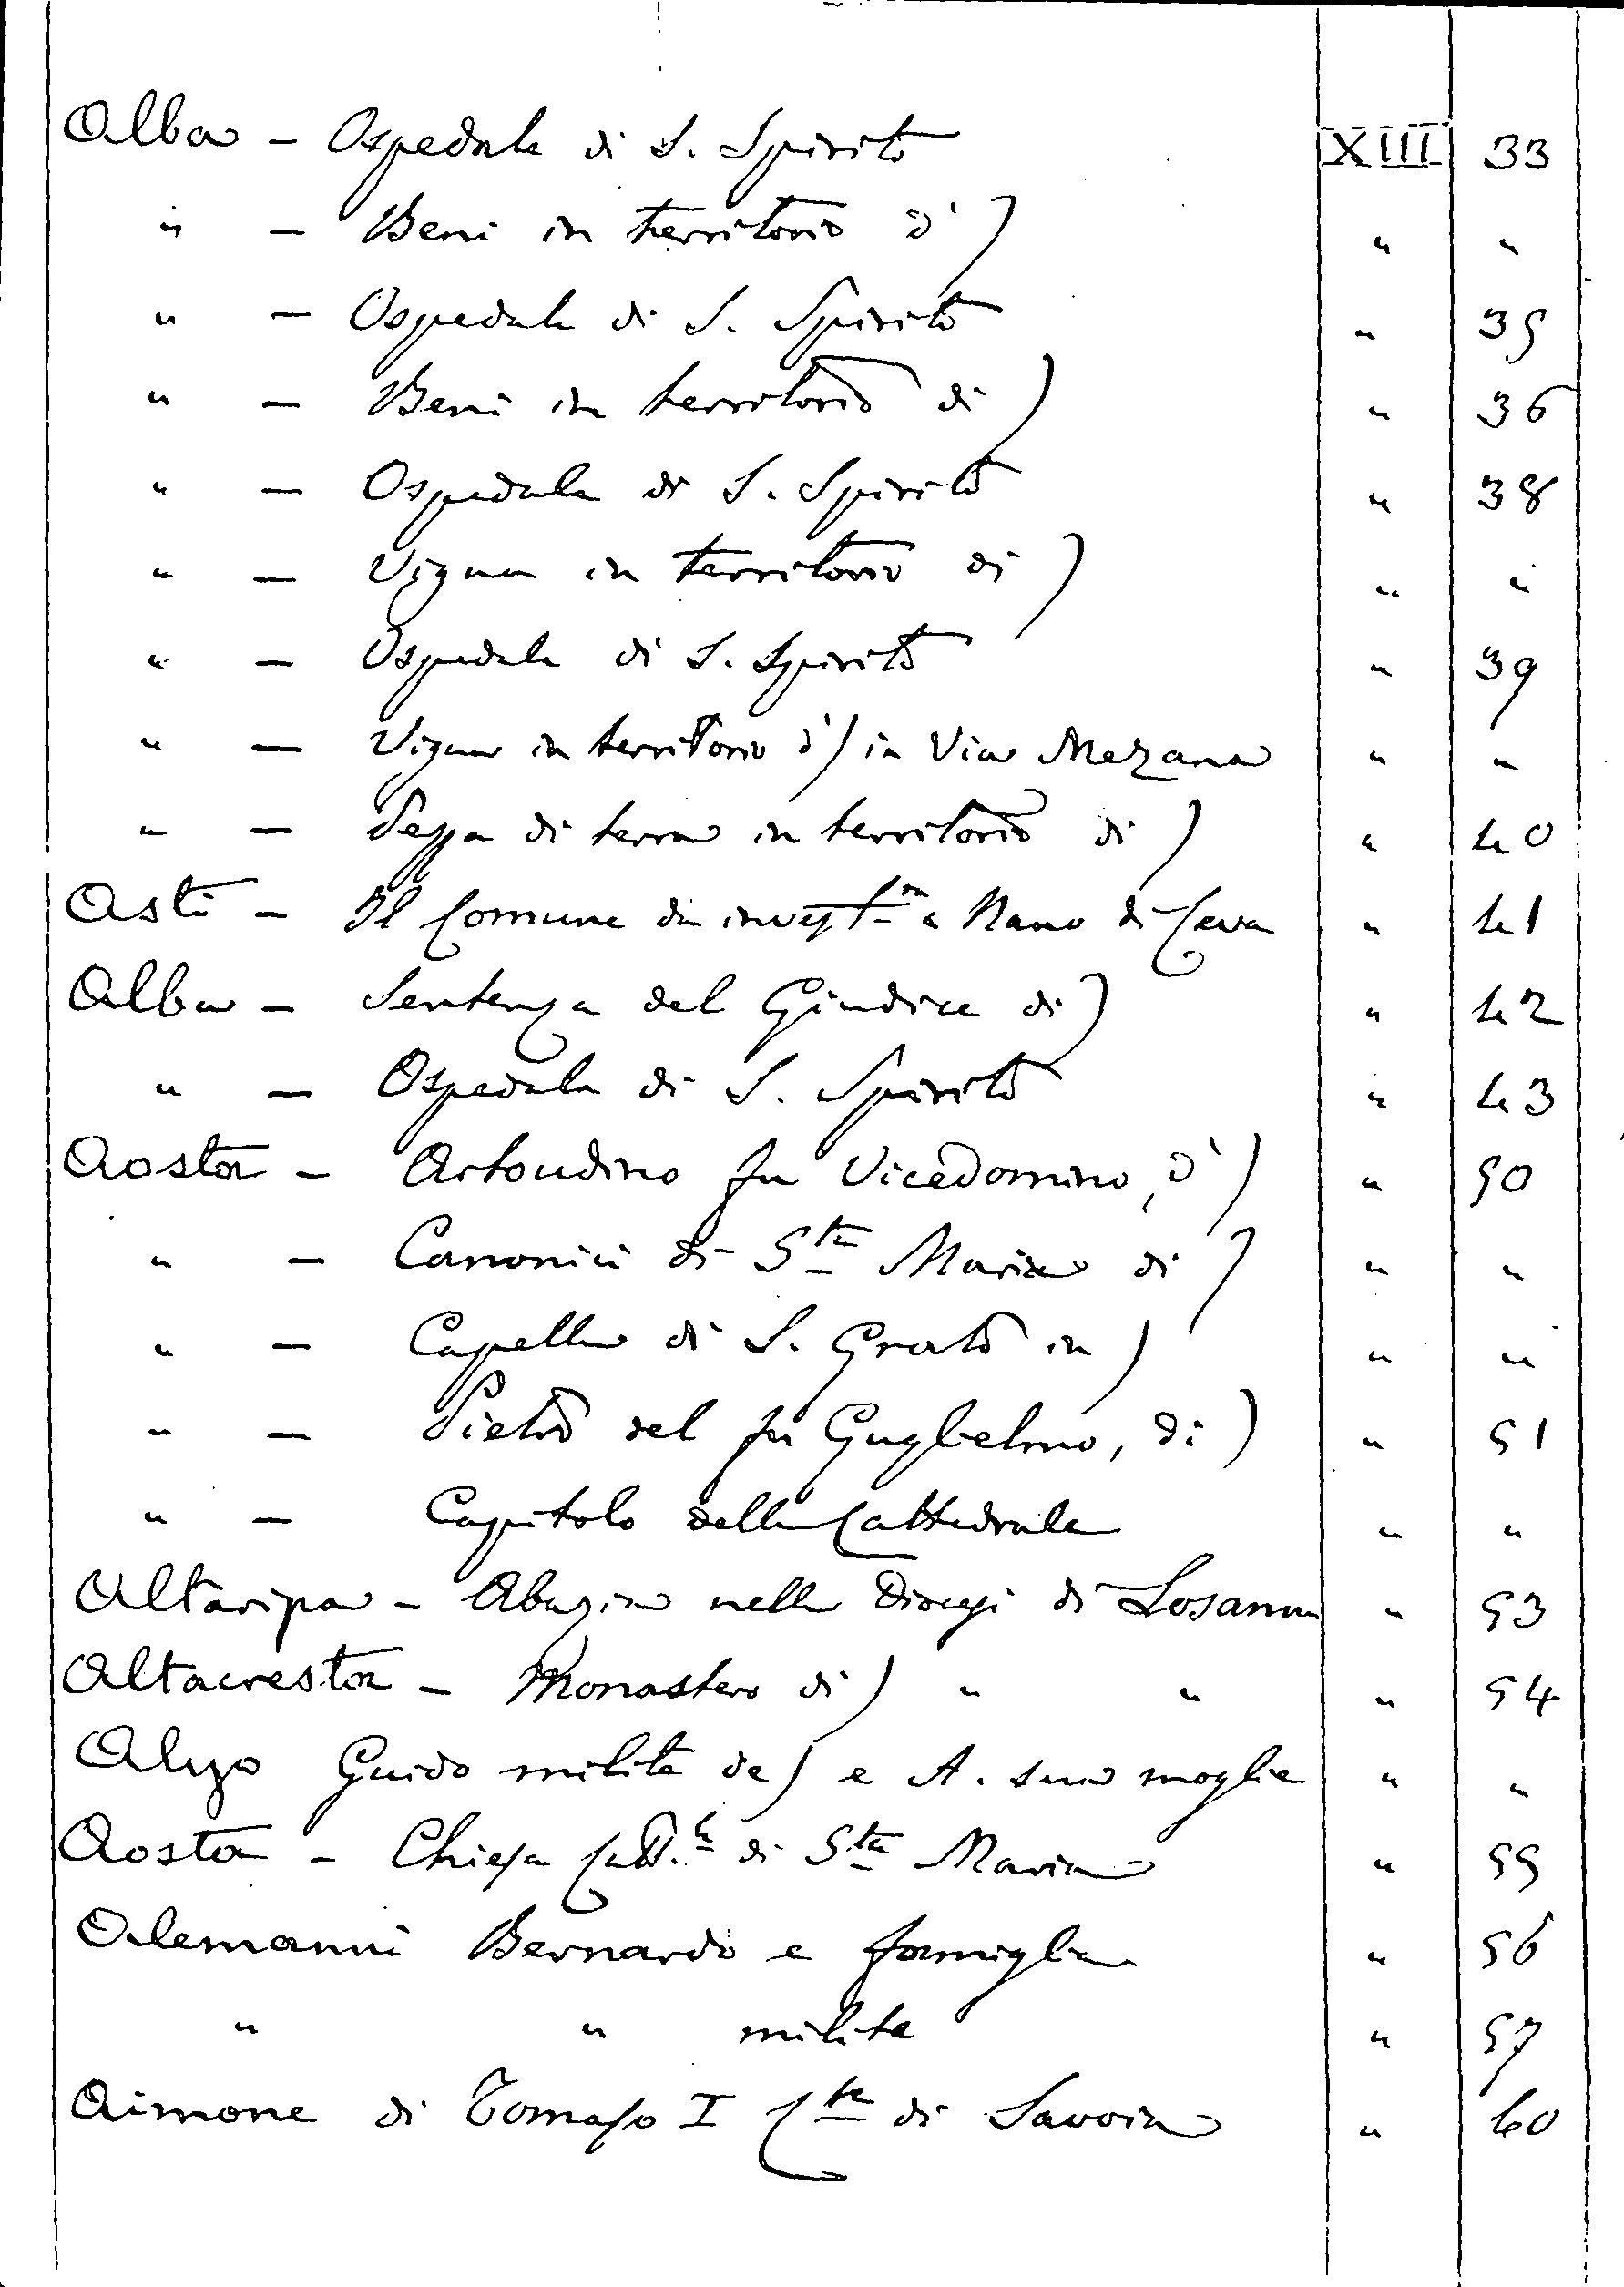 Alba - Ospedale di S. Spirito XIII 33
" - Beni in territorio d') " "
" - Ospedale di S. Spirito " 35
" - Beni in territorio di) " 36
" - Ospedale di S. Spirito " 38
" - Vigna in territorio di) " "
" - Ospedale di S. Spirito " 39
" - Vigna in territorio d') in Via Mezana " "
" - Pezza di terra in territorio di) " 40
Asti - Il Comune dà invest.ra a Nano di Ceva " 41
Alba - Sentenza del Giudice di) " 42
" - Ospedale di S. Spirito " 43
Aosta - fu Vicedomino, d') " 50
" - Canonici di Sta Maria di) " "
" - Capella di S. Grato in) " "
" - Pietro del fu Guglielmo, di) " 51
" - Capitolo della Cattedrale " "
Altaripa - Abazia nella Diocesi di Losanna " 53
Altacresta - Monastero di) " " " 54
Guido milite de) e A. sua moglie " "
Aosta - Chiesa Catt.le di Sta Maria " 55
Alemanni Bernardo e famiglia " 56
" " milite " 57
Aimone di Tomaso I Cte di Savoia " 60